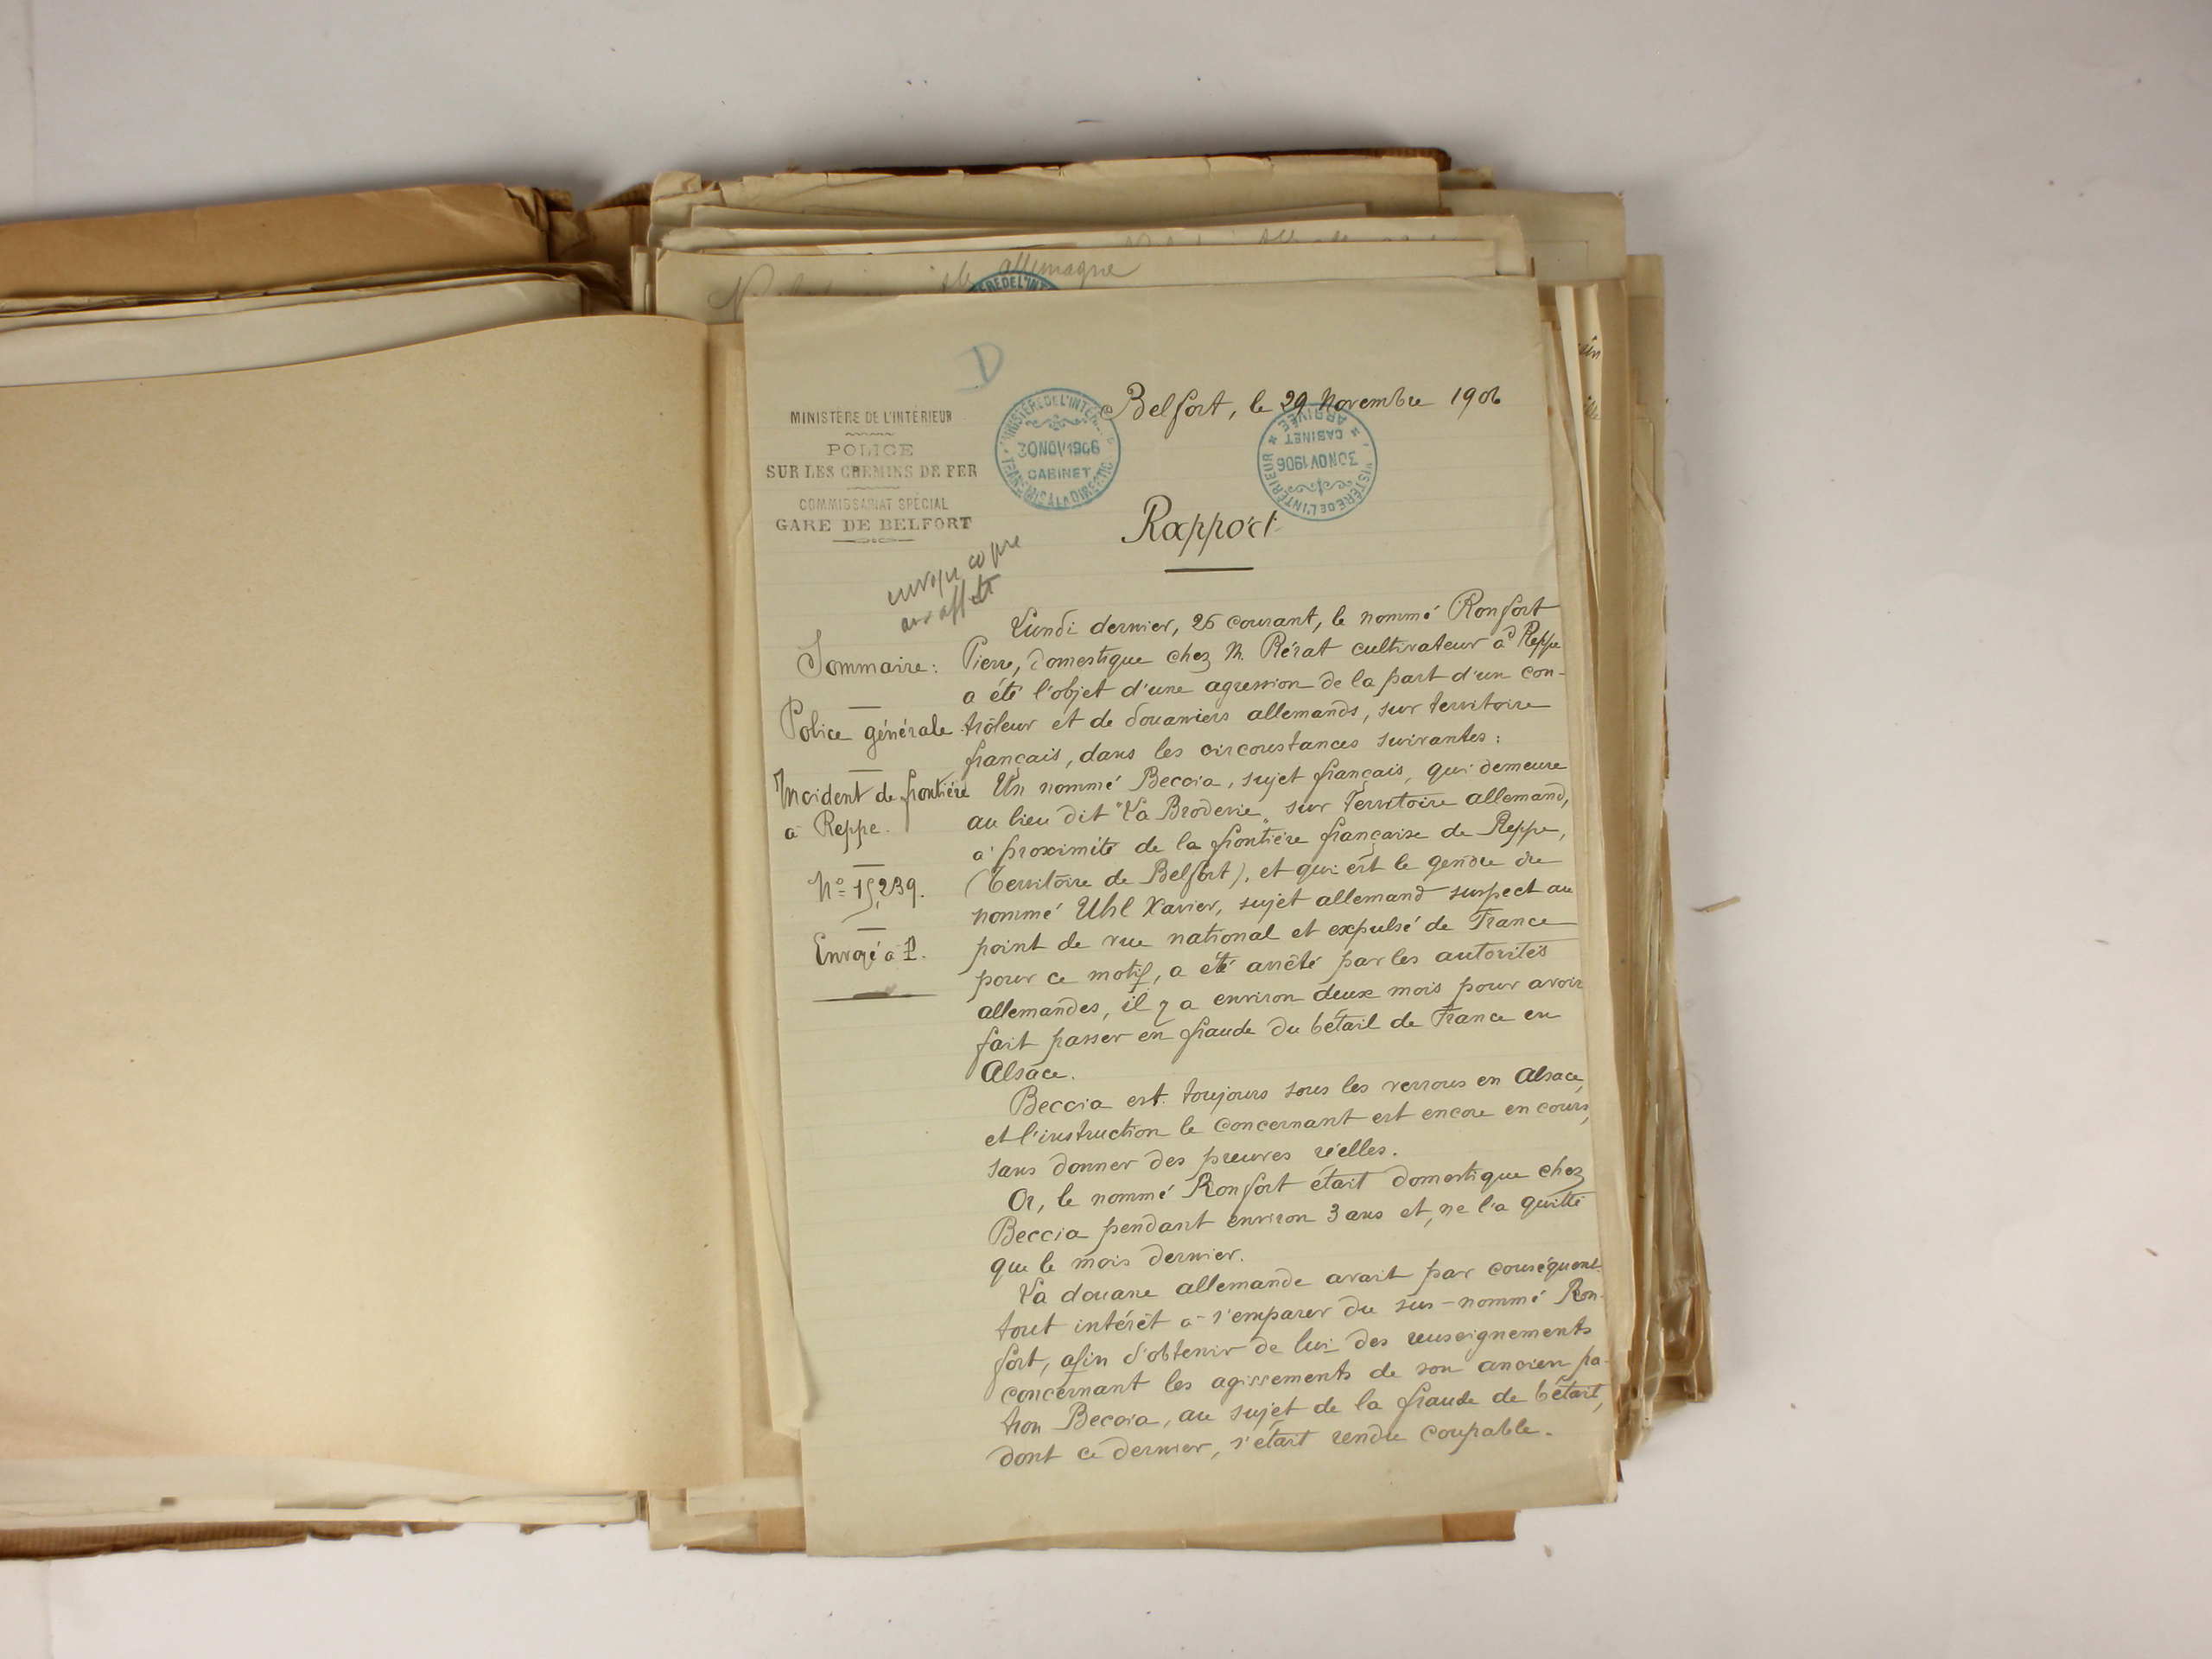 allemagne
D
MINISTÈRE DE L'INTÉRIEUR
POLICE
SUR LES CHEMINS DE FER
COMMISSARIAT SPÉCIAL
GARE DE BELFORT
MINISTÈRE DE L'INTÉRIEUR
30 NOV 1906
CABINET
TRANSMIS A LA DIRECTION
Belfort, le 29 Novembre 1906
MINISTÈRE DE L'INTÉRIEUR
30 NOV 1906
CABINET
ARRIVÉE
Rapport
envoyé copie
aux aff et
Sommaire :
Police générale
Incident de frontière
à Reppe.
No 15,239.
Envoyé à 1.
Lundi dernier, 26 courant, le nommé Ronfort
Pierre, domestique chez M. Rérat cultivateur à Reppe
a été l'objet d'une agression de la part d'un con-
trôleur et de douaniers allemands, sur territoire
français, dans les circonstances suivantes :
Un nommé Beccia, sujet français, qui demeure
au lieu dit "La Broderie" sur territoire allemand,
à proximité de la frontière française de Reppe,
(territoire de Belfort), et qui est le gendre du
nommé Uhl Xavier, sujet allemand suspect au
point de vue national et expulsé de France
pour ce motif, a été arrêté par les autorités
allemandes, il y a environ deux mois pour avoir
fait passer en fraude du bétail de France en
Alsace.
Beccia est toujours sous les verrous en Alsace,
et l'instruction le concernant est encore en cours,
sans donner des preuves réelles.
Or, le nommé Ronfort était domestique chez
Beccia pendant environ 3 ans et, ne l'a quitté
que le mois dernier.
La douane allemande avait par conséquent
tout intérêt à s'emparer du sus-nommé Ron-
fort, afin d'obtenir de lui des renseignements
concernant les agissements de son ancien pa-
tron Beccia, au sujet de la fraude de bétail,
dont ce dernier, s'était rendu coupable.